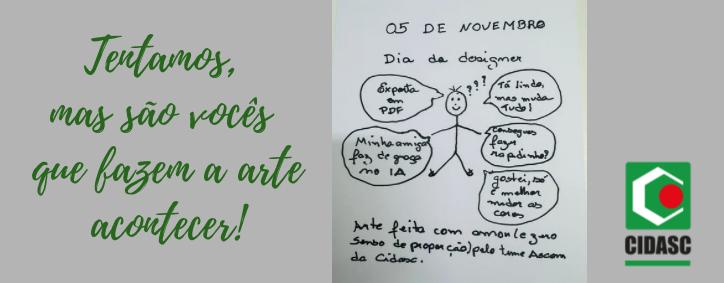 Tentamos,
mas são vocês
que fazem a arte
acontecer!
05 DE NOVEMBRO
Dia do designer
???
Exporta
em
PDF
Tá lindo,
mas muda
tudo!
Minha amiga
faz de graça
no IA
Consegues
fazer
rapidinho?
gostei, só
é melhor
mudar as
cores
Arte feita com amor (e zero
senso de proporção) pelo time Ascom
da Cidasc.
CIDASC